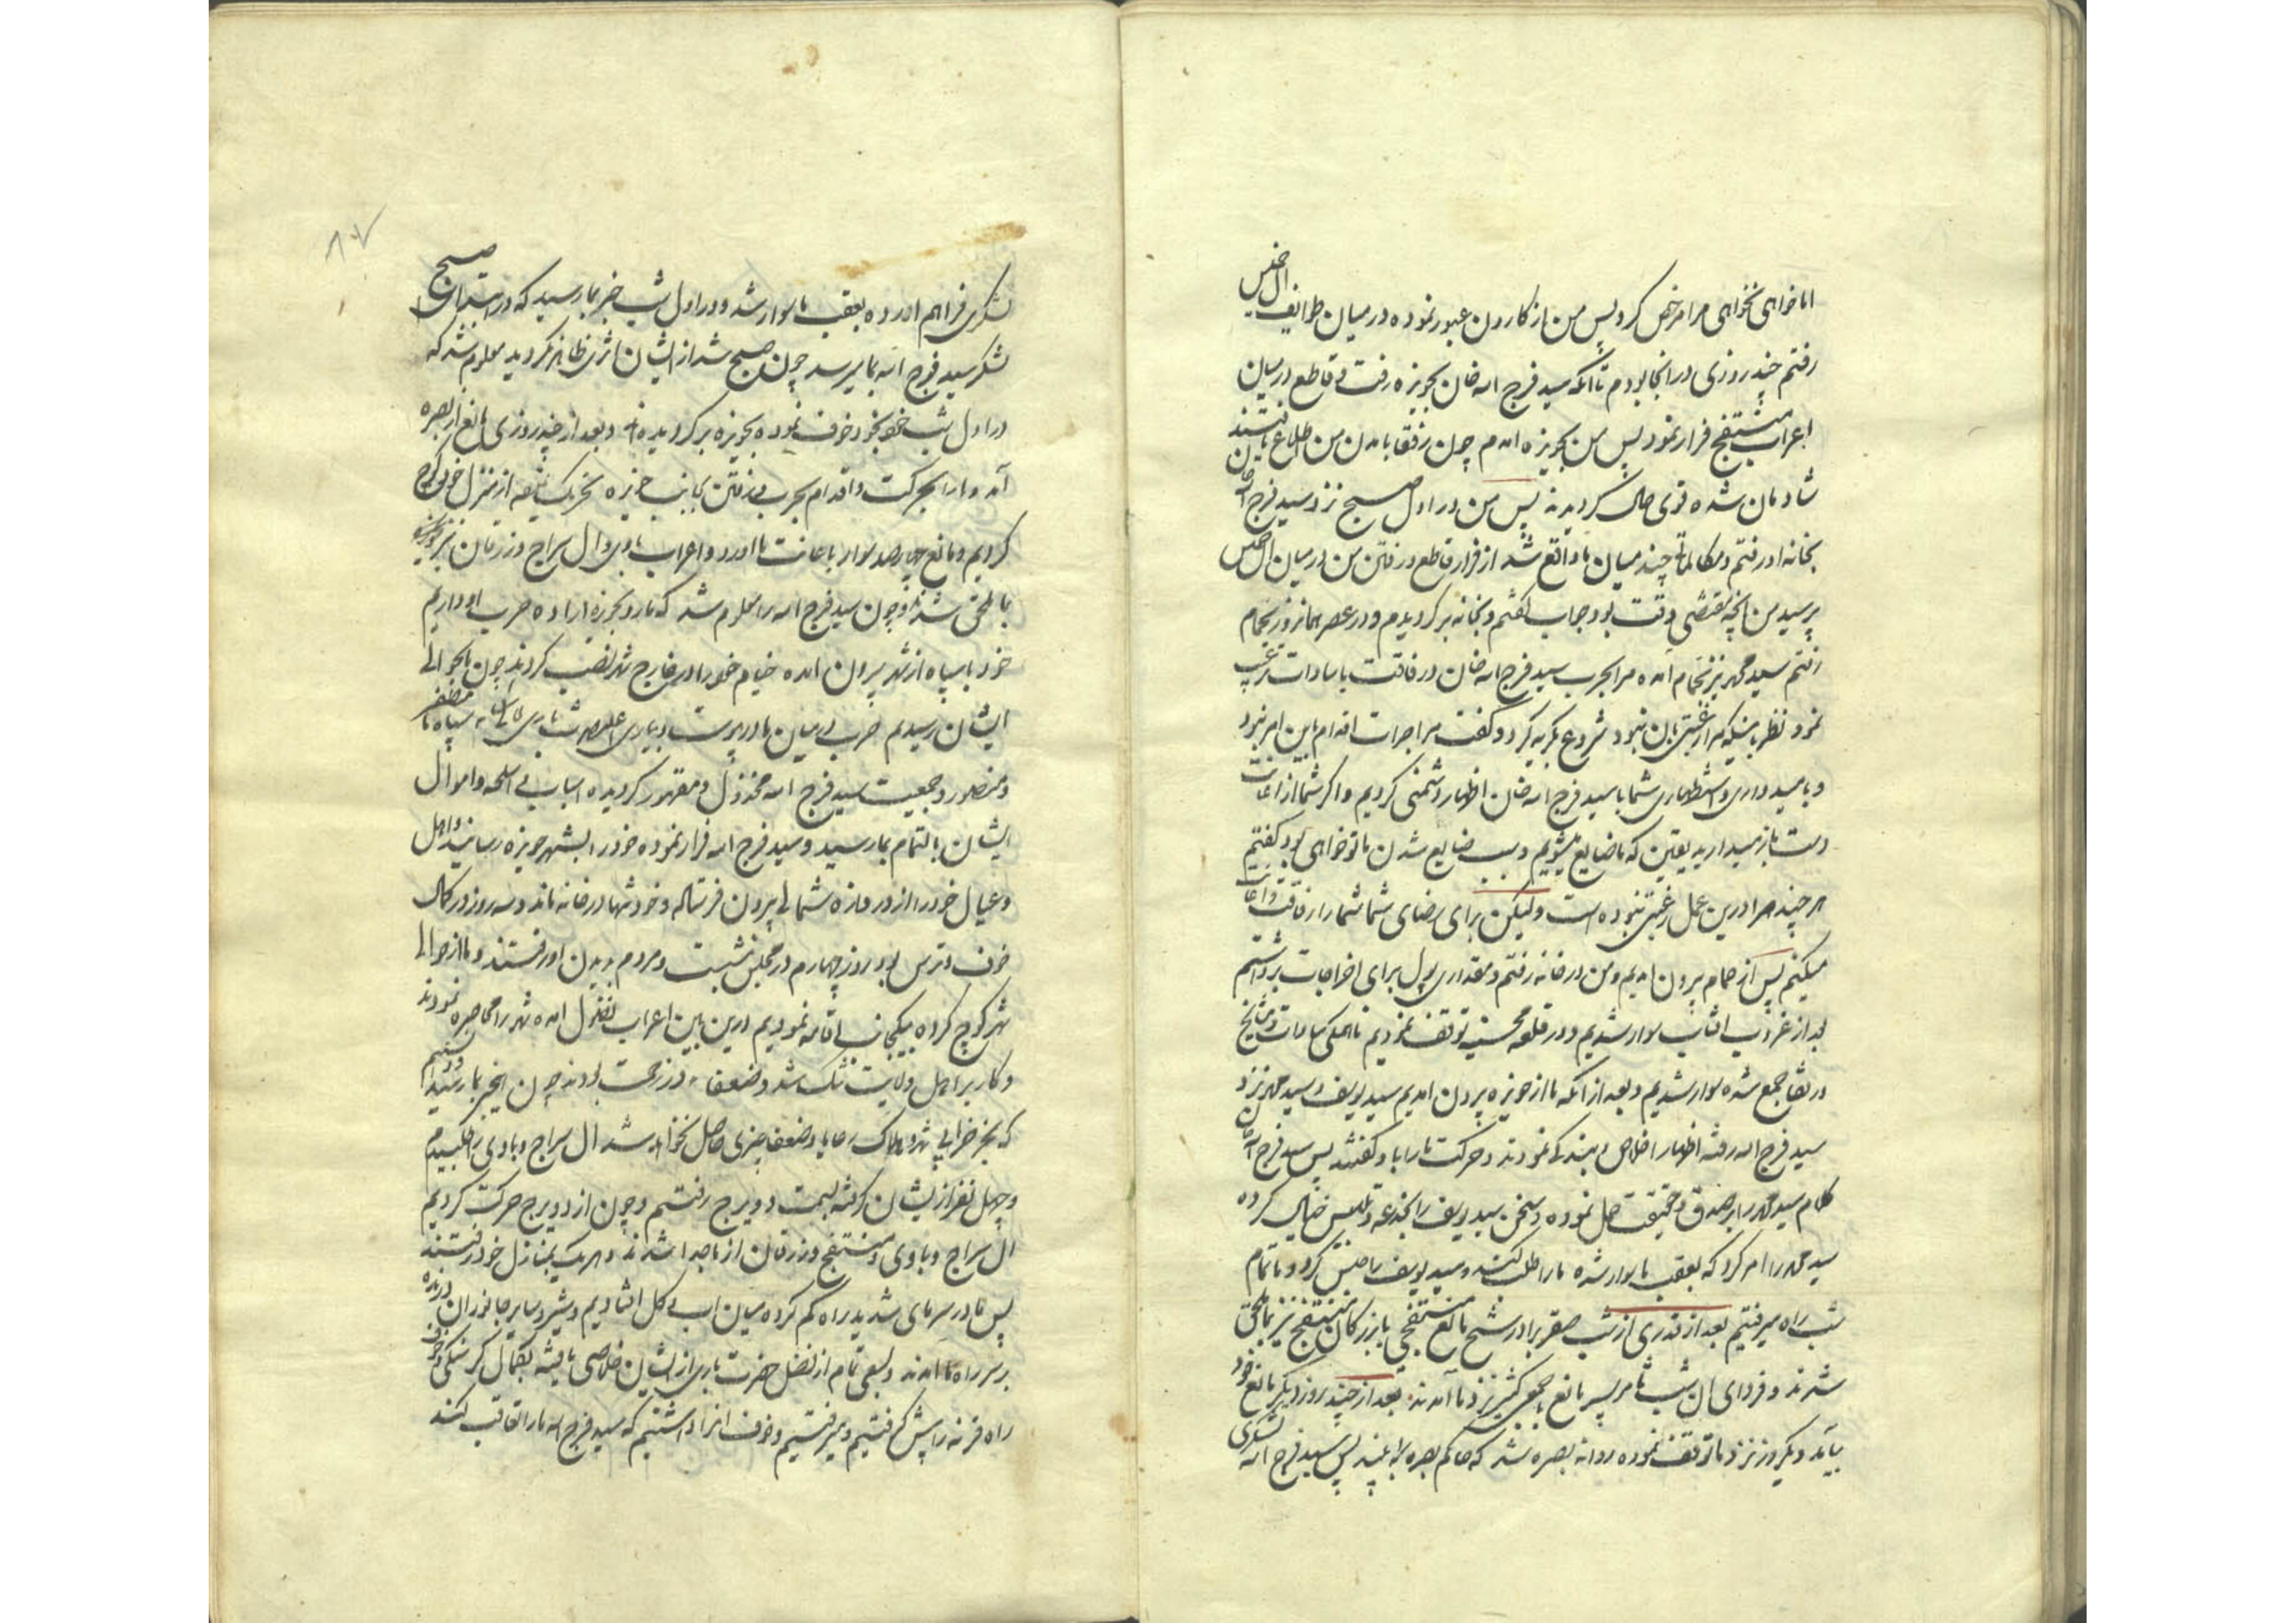 اما خواهی نخواهی مرا مرخص کرد پس من از کارون عبور نموده در میان طوایف ال خمیس
رفتم چند روزی در انجا بودم تا انکه سید فرج اله خان بحویزه رفت و قاطع در میان
اعراب منتفج فرار نمود پس من بحویزه امدم چون رفقا بامدن من اطلاع یافتند
شادمان شده قوی حال کردیدند پس من در اول صبح نزد سید فرج اله خان
بخانه او رفتم و مکالمات چند میان ما واقع شد از فرار قاطع و رفتن من در میان ال خمیس
پرسید من انچه مقتضی وقت بود جواب کفتم و بخانه برکردیدم و در عصر همانروز بحمام
رفتم سید محمد نیز بحمام امده مرا بحرب سید فرج اله خان و رفاقت با سادات ترغیب
نمود نظر باینکه مرا رغبتی بان نبود شروع بکریه کرد و کفت مرا جرات اقدام باین امر نبود
و بامیدواری و استظهاری شما با سید فرج اله خان اظهار دشمنی کردیم و اکر شما از اعانت
دست باز میدارید یقین که ما ضایع میشویم و سبب ضایع شدن ما تو خواهی بود کفتم
هر چند مرا درین عمل رغبتی نبوده است ولیکن برای رضای شما شما را رفاقت و اعانت
میکنم پس از حمام بیرون امدیم و من در خانه رفتم و مقداری پول برای اخراجات برداشتم
بعد از غروب افتاب سوار شدیم و در قلعه محسنیه توقف نمودیم تا همکی سادات و مشایخ
در بقا جمع شده سوار شدیم و بعد از انکه ما از حویزه بیرون امدیم سید یوسف و سید محمد نزد
سید فرج اله رفته اظهار اخلاص و بندکی نمودند و حرکت ما را باو کفتند پس سید فرج اله خان
کلام سید محمد را بر صدق و حقیقت حمل نموده و سخن سید یوسف را بخدعه و تلبیس خیال کرده
سید محمد را امر کرد که بعقب ما سوار شده ما را طلب کند و سید یوسف را حبس کرد و ما تمام
شب راه میرفتیم بعد از قدری از شب صقر برادر شیخ مانع منتفجی با بزرکان منتفج نیز بما ملحق
شدند و فردای ان شب ثامر پسر مانع با جمعی کثیر نزد ما آمدند بعد از چند روز دیکر مانع خود
بیآمد و یکروز نزد ما توقف نموده روانه بصره شد که حاکم بصره را به بیند پس سید فرج اله لشکری
لشکری فراهم اورده بعقب ما سوار شد و در اول شب خبر بما رسید که در ابتدای صبح
لشکر سید فرج اله بما میرسد چون صبح شد از ایشان اثری ظاهر نکردید معلوم شد که
در اول شب خود بخود خوف نموده بحویزه برکردیده اند و بعد از چند روزی مانع از بصره
آمد و ما را بحرکت و اقدام بحرب و رفتن بجانب حویزه تحریک نمود از منزل خود کوچ
کردیم و مانع چهارصد سوار باعانت ما اورد و اعراب باوی و ال سراج و زرقان نیز
بما ملحق شدند و چون سید فرج اله را معلوم شد که ما رو بحویزه اراده حرب او داریم
خود با سپاه از شهر بیرون امده خیام خود را در خارج شهر نصب کردند چون بحوالی
ایشان رسیدیم حرب در میان ما در پیوست و بیاری حضرت باری تعالی سپاه ما مظفر
و منصور و جمعیت سید فرج اله مخذول و مقهور کردیده اسباب و اسلحه و اموال
ایشان بالتمام بما رسید و سید فرج اله فرار نموده خود را بشهر حویزه رسانید و اهل
و عیال خود را از دروازه شمالی بیرون فرستاد و خود تنها در خانه ماند و سه روز در کمال
خوف و ترس بود روز چهارم در مجلس نشست و مردم بدیدن او رفتند و ما از حوالی
شهر کوچ کرده بیکجانب اقامه نمودیم درین بین اعراب فضول امده شهر را محاصره نمودند
و کار بر اهل ولایت تنک شد و ضعفاء در زحمت بودند چون اینخبر بما رسید و دانستیم
که بجز خرابی شهر و هلاک رعایا و ضعفا چیزی حاصل نخواهد شد ال سراج و باوی را طلبیدیم
و چهل نفر از ایشان کرفته بسمت دویرج رفتیم و چون از دویرج حرکت کردیم
ال سراج و باوی و منتفج و زرقان از ما جدا شدند و هر یک بمنازل خود رفتند
پس ما در سرمای شدید راه کم کرده میان اب و کل افتادیم و شیر و سایر جانوران درنده
بر سر راه ما امدند و بسعی تمام از فضل حضرت باری از ایشان خلاصی یافته بکمال کرسنکی و خوف
راه قرنه را پیش کرفتیم و میرفتیم و خوف انرا داشتیم که سید فرج اله ما را تعاقب کند